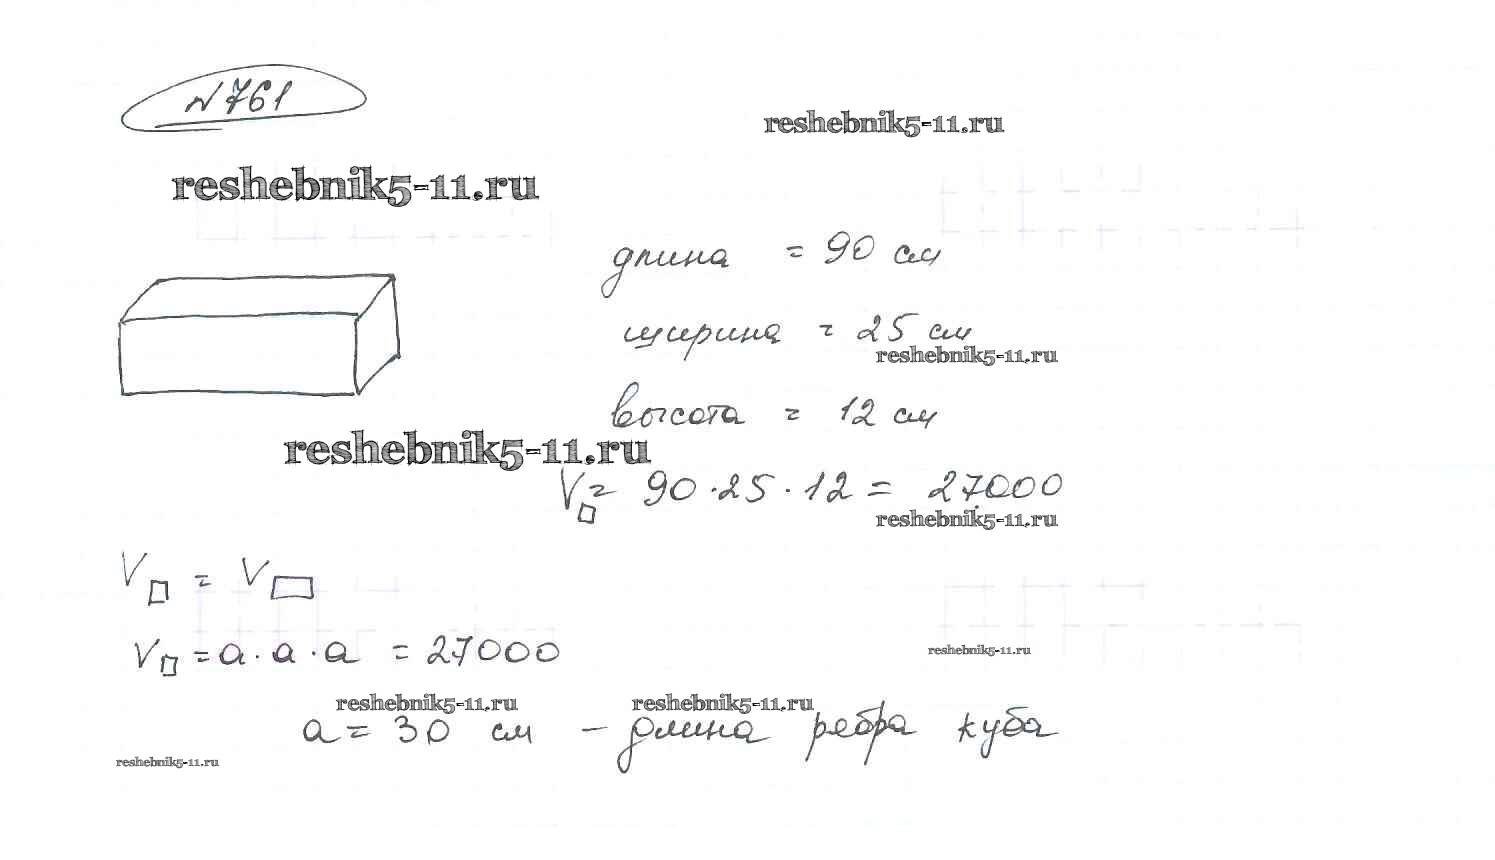 №761
reshebnik5-11.ru
reshebnik5-11.ru
длина = 90 см
ширина = 25 см
reshebnik5-11.ru
высота = 12 см
reshebnik5-11.ru
V▱ = 90·25·12 = 27000
reshebnik5-11.ru
V□ = V▭
V□ = a·a·a = 27000
reshebnik5-11.ru
reshebnik5-11.ru reshebnik5-11.ru
a = 30 см – длина ребра куба
reshebnik5-11.ru